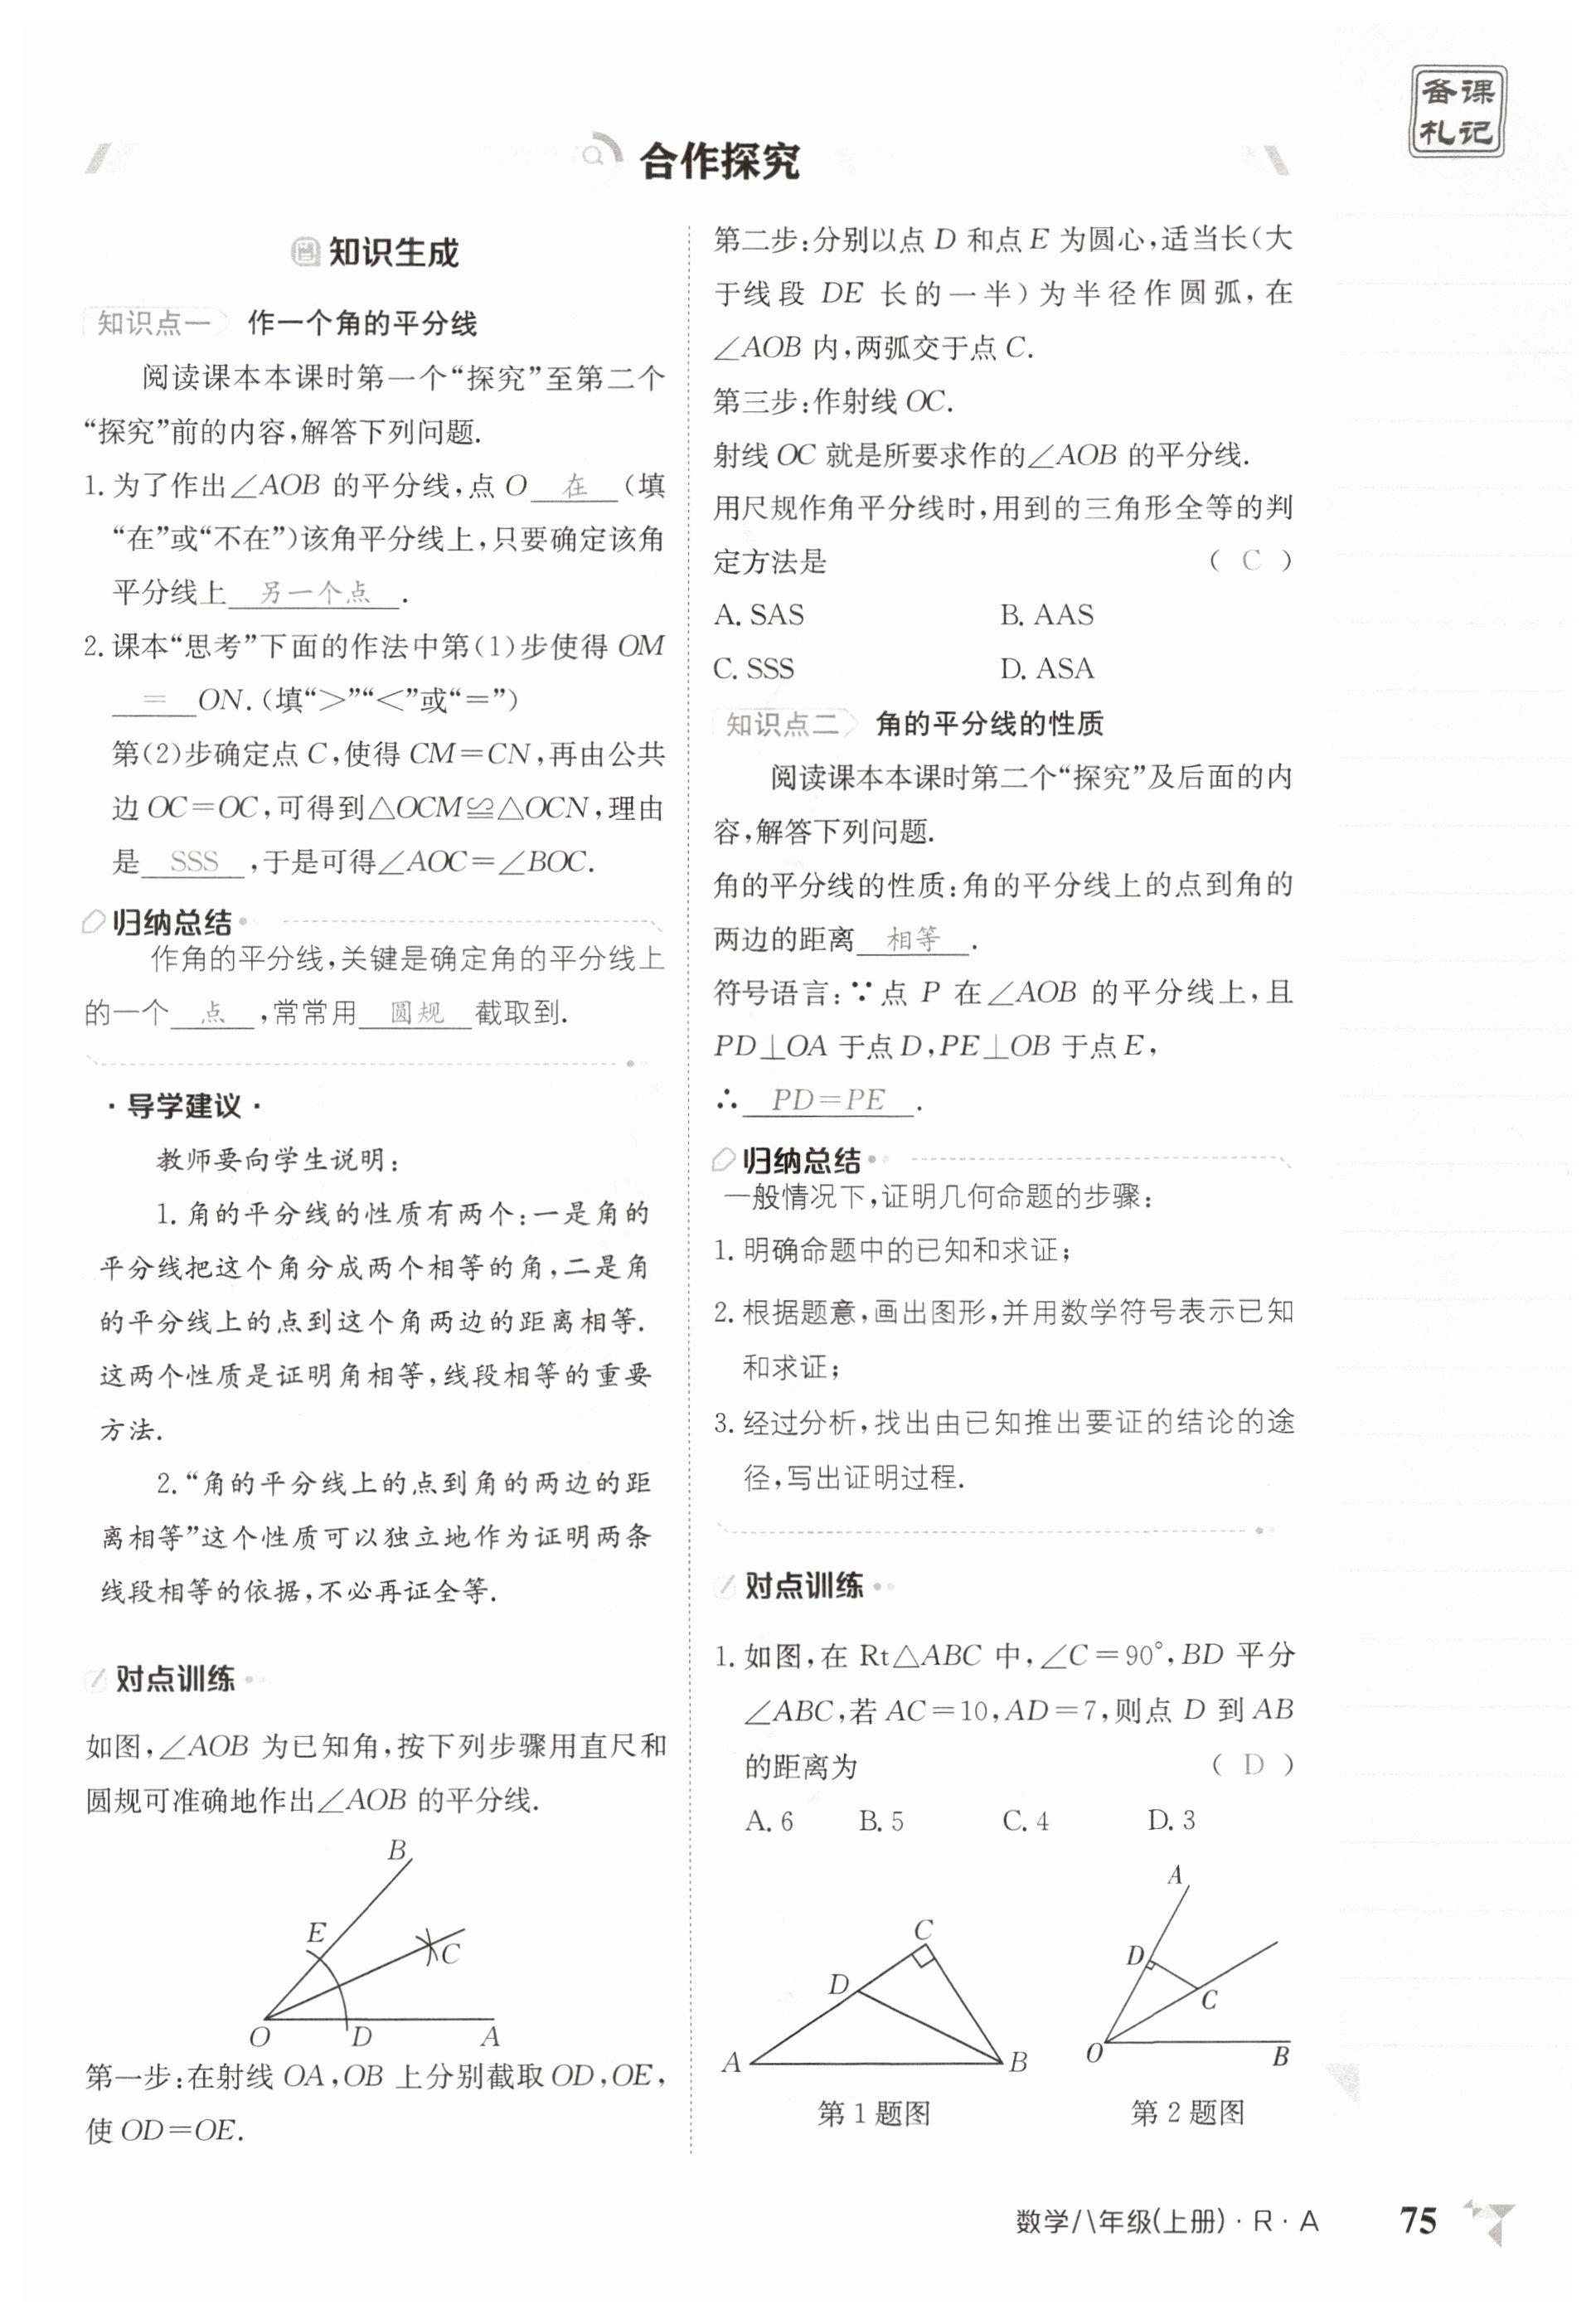 备课
札记
合作探究
知识生成
知识点一 作一个角的平分线
阅读课本本课时第一个“探究”至第二个
“探究”前的内容,解答下列问题.
1. 为了作出∠AOB 的平分线,点 O 在 (填
“在”或“不在”)该角平分线上,只要确定该角
平分线上 另一个点 .
2. 课本“思考”下面的作法中第(1)步使得 OM
= ON.(填“>”“<”或“=”)
第(2)步确定点 C,使得 CM=CN,再由公共
边 OC=OC,可得到△OCM≌△OCN,理由
是 SSS ,于是可得∠AOC=∠BOC.
归纳总结
作角的平分线,关键是确定角的平分线上
的一个 点 ,常常用 圆规 截取到.
·导学建议·
教师要向学生说明:
1. 角的平分线的性质有两个:一是角的
平分线把这个角分成两个相等的角,二是角
的平分线上的点到这个角两边的距离相等.
这两个性质是证明角相等,线段相等的重要
方法.
2.“角的平分线上的点到角的两边的距
离相等”这个性质可以独立地作为证明两条
线段相等的依据,不必再证全等.
对点训练
如图,∠AOB 为已知角,按下列步骤用直尺和
圆规可准确地作出∠AOB 的平分线.
B
E
C
O D A
第一步:在射线 OA,OB 上分别截取 OD,OE,
使 OD=OE.
第二步:分别以点 D 和点 E 为圆心,适当长(大
于线段 DE 长的一半)为半径作圆弧,在
∠AOB 内,两弧交于点 C.
第三步:作射线 OC.
射线 OC 就是所要求作的∠AOB 的平分线.
用尺规作角平分线时,用到的三角形全等的判
定方法是 ( C )
A. SAS B. AAS
C. SSS D. ASA
知识点二 角的平分线的性质
阅读课本本课时第二个“探究”及后面的内
容,解答下列问题.
角的平分线的性质:角的平分线上的点到角的
两边的距离 相等 .
符号语言:∵点 P 在∠AOB 的平分线上,且
PD⊥OA 于点 D,PE⊥OB 于点 E,
∴ PD=PE .
归纳总结
一般情况下,证明几何命题的步骤:
1. 明确命题中的已知和求证;
2. 根据题意,画出图形,并用数学符号表示已知
和求证;
3. 经过分析,找出由已知推出要证的结论的途
径,写出证明过程.
对点训练
1. 如图,在 Rt△ABC 中,∠C=90°,BD 平分
∠ABC,若 AC=10,AD=7,则点 D 到 AB
的距离为 ( D )
A. 6 B. 5 C. 4 D. 3
C
D
A B
第 1 题图
A
D
C
O B
第 2 题图
数学/八年级(上册)·R·A 75